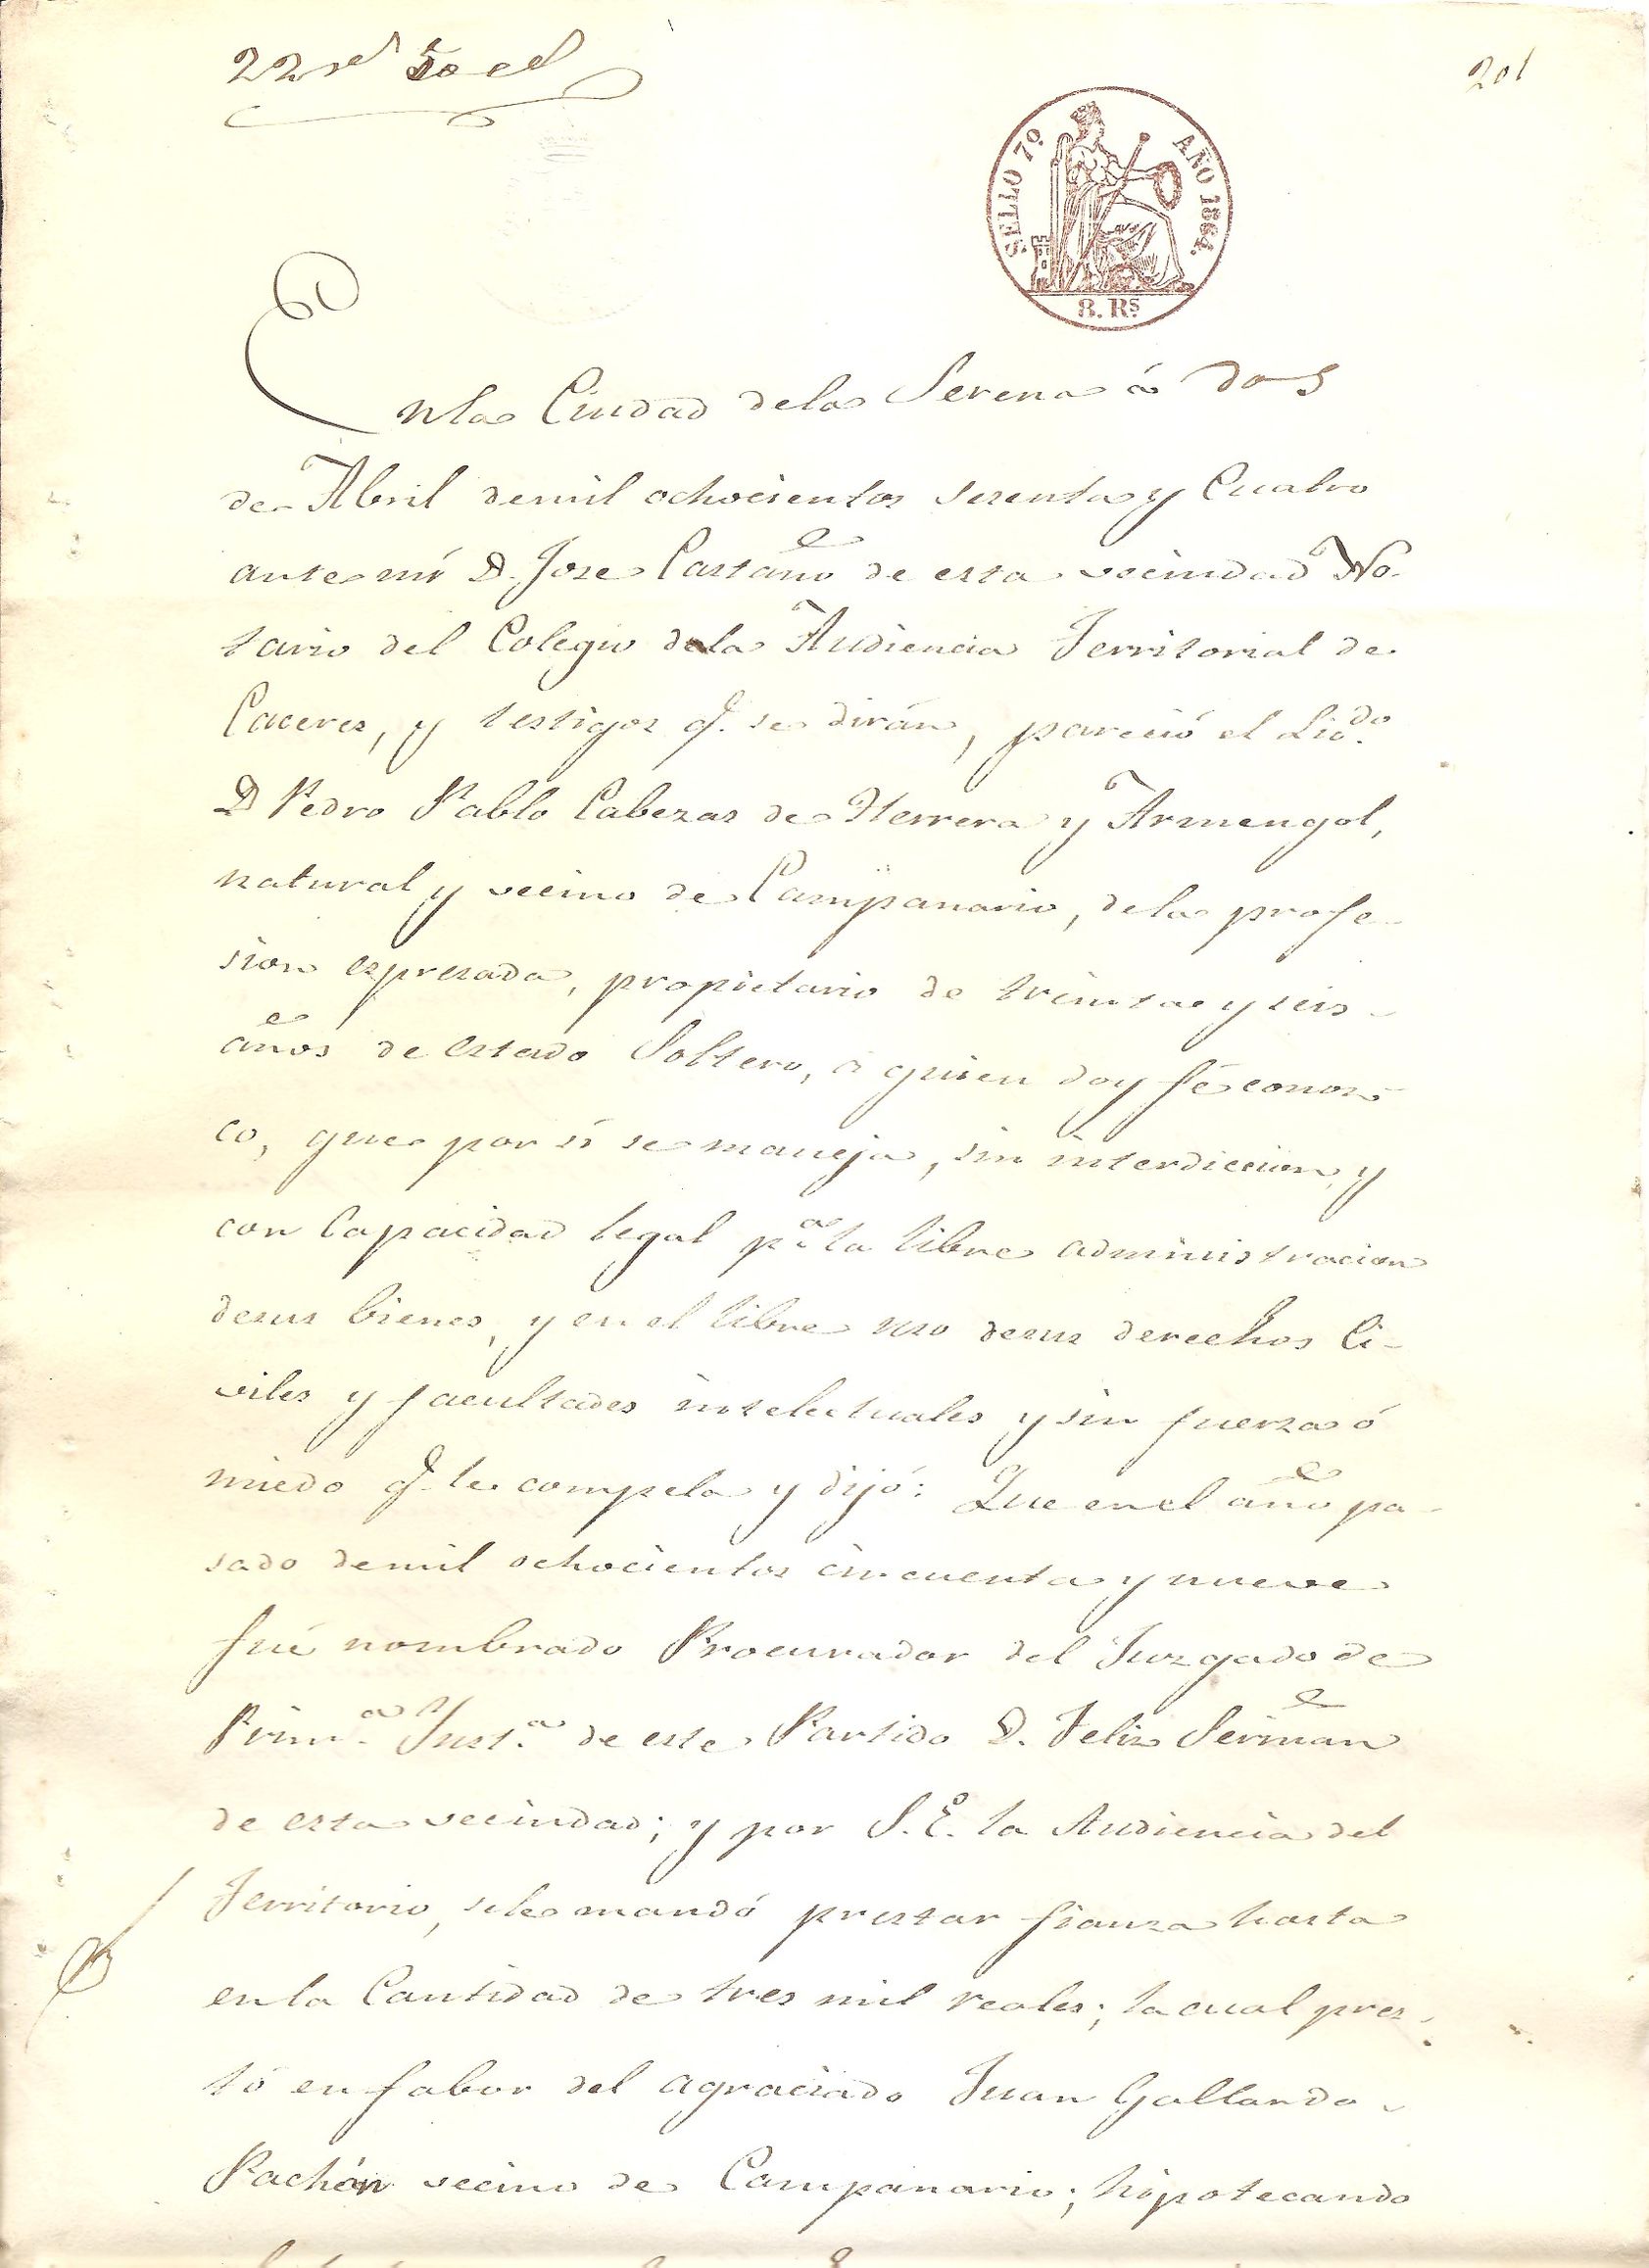 22 rs 50 cs
201
SELLO 7º AÑO 1864.
8. Rs
En la Ciudad dela Serena á dos
de Abril de mil ochocientos sesenta y Cuatro
ante mi D. Jose Castaño de esta vecindad No-
tario del Colegio dela Audiencia Territorial de
Caceres, y testigos q. se dirán, pareció el Licdo.
D Pedro Pablo Cabezas de Herrera y Armengol,
natural y vecino de Campanario, dela profe-
sion espresada, propietario de treinta y seis
años de estado Soltero, á quien doy fé conoz-
co, que por si se maneja, sin interdiccion, y
con Capacidad legal pª la libre administracion
desus bienes, y en el libre uso desus derechos Ci-
viles y facultades intelectuales y sin fuerza ó
miedo q. le compela y dijó: Que en el año pa-
sado demil ochocientos cincuenta y nueve
fué nombrado Procurador del Juzgado de
Primª. Instª. de este Partido D. Felix Serman
de esta vecindad; y por S. E. la Audiencia del
Territorio, sele mandó prestar fianza hasta
en la Cantidad de tres mil reales; la cual pres-
tó en fabor del agraciado Juan Gallardo
Pachón vecino de Campanario; hipotecando